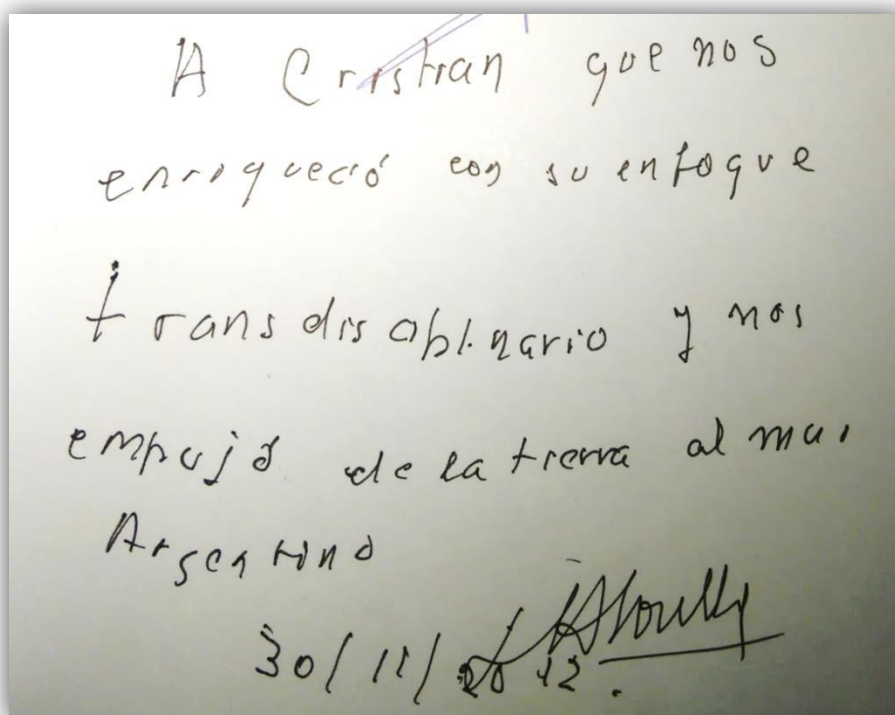 A Cristian que nos
enriqueció con su enfoque
transdisciplinario y nos
empujó de la tierra al mar
Argentino
30/11/2012.